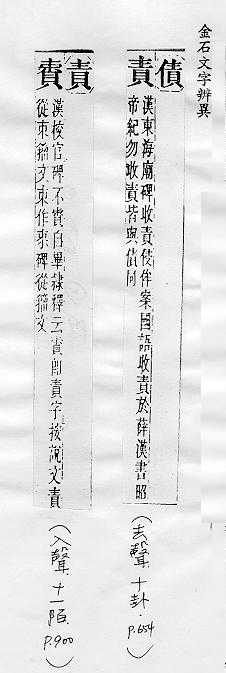 金石文字辨異
債
責
漢東海廟碑收責侵侔案國語收責於薛漢書昭
帝紀勿收責皆與債同
(去聲 十卦 P.654)
責
賷
漢校官碑不賷自畢隸釋云賷即責字按說文責
從朿籀文朿作來碑從籀文
(入聲 十一陌 P.900)